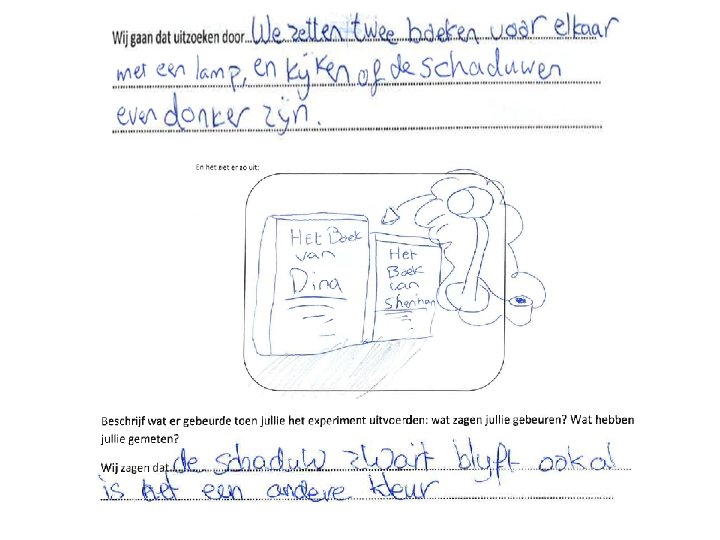 Wij gaan dat uitzoeken door We zetten twee boeken voor elkaar
met een lamp, en kijken of de schaduwen
even donker zijn.
En het ziet er zo uit:
Het Boek
van
Dina
Het
Boek
van
Shenhen
Beschrijf wat er gebeurde toen jullie het experiment uitvoerden: wat zagen jullie gebeuren? Wat hebben
jullie gemeten?
Wij zagen dat de schaduw zwart blyft ook al
is het een andere kleur